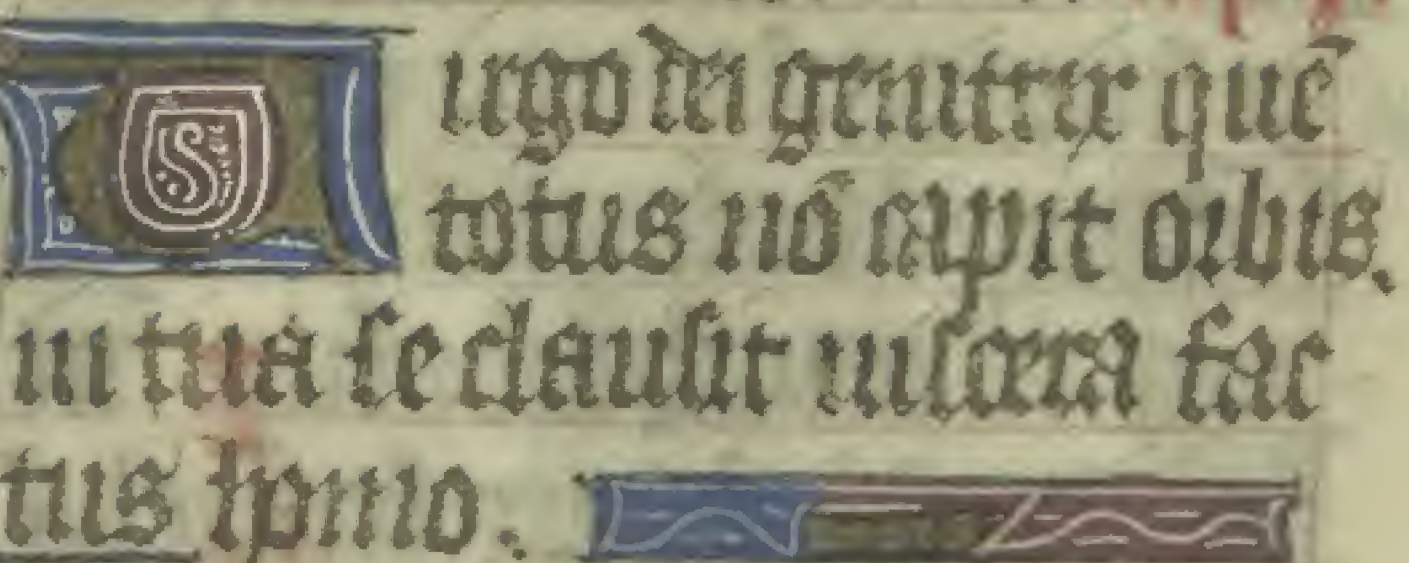 Uirgo dei genitrix quē
totus nō capit orbis.
in tua se clausit uiscera fac
tus homo.